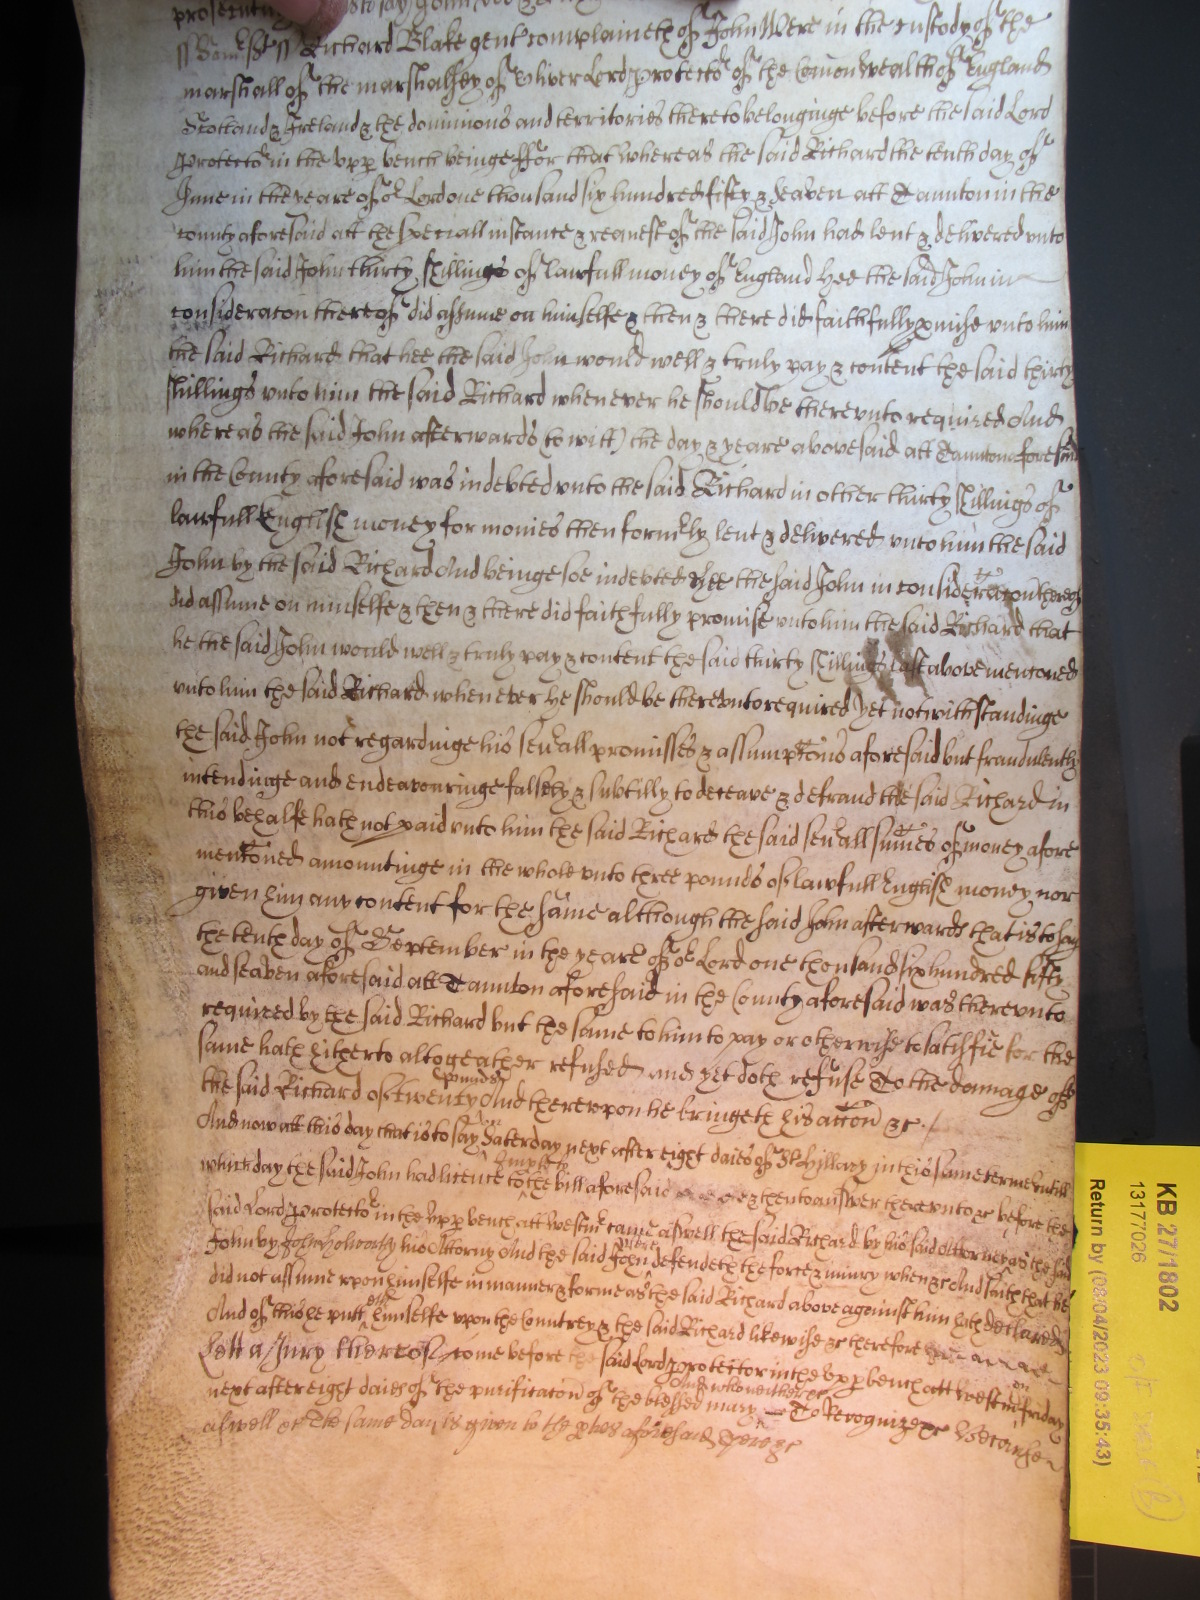 prosecuting to say John
ss Somsst ss Richard Blake gent complaineth of John Were in the custody of the
marshall of the marshalsey of Oliver Lord protector of the Comon wealth of England
Scotland & Ireland & the dominions and territories thereto belonginge before the said Lord
protector in the vpp bench beinge ffor that whereas the said Richard the tenth day of
June in the yeare of or Lord one thousand six hundred fifty & seaven att Taunton in the
County aforesaid att the speciall instance & request of the said John had lent & delivered vnto
him the said John thirty shillings of lawfull money of England Hee the said John in
consideracon thereof did assume on himselfe & then & there did faithfully pmise vnto him
the said Richard that hee the said John would well & truly pay & content the said thirty
shillings vnto him the said Richard whenever he should be therevnto required And
whereas the said John afterwards (to witt) the day & yeare abovesaid att Taunton aforesaid
in the County aforesaid was indebted vnto the said Richard in other thirty shillings of
lawfull English money for monies then formly lent & delivered vnto him the said
John by the said Richard And beinge soe indebted Hee the said John in consideracon thereof
did assume on himselfe & then & there did faithfully promise vnto him the said Richard that
he the said John would well & truly pay & content the said thirty shillings last above mencioned
vnto him the said Richard whenever he should be therevnto required Yet notwithstandinge
the said John not regardinge his seuall promisses & assumptions aforesaid but fraudulently
intendinge and endeavouringe falsely & subtilly to deceave & defraud the said Richard in
this behalfe hath not paid vnto him the said Richard the said seuall sumes of money afore
mentioned amountinge in the whole vnto three pounds of lawfull English money nor
given him any content for the same although the said John afterwards that is to say
the tenth day of September in the yeare of or Lord one thousand six hundred fifty
and seaven aforesaid att Taunton aforesaid in the County aforesaid was therevnto
required by the said Richard but the same to him to pay or otherwise to satisfie for the
same hath hitherto altogeather refused and yet doth refuse To the damage of
the said Richard of twenty pounds And therevpon he bringeth his accon &c
And now att this day that is to say on Saterday next after eight daies of St Hillary in this same terme vntill
which day the said John had licence to imparle to the bill aforesaid & then to answer therevnto &c before the
said Lord protector in the vpp bench att Westmr came aswell the said Richard by his said Attorney as the said
John by John his Attorny And the said John Were defendeth the force & iniury when &c And saith that he
did not assume vpon himselfe in manner & forme as the said Richard above against him hath declared
And of this he putteth himselfe vpon the Countrey & the said Richard likewise &c therefore
lett a Jury thereof come before the said Lord protector in the vpp bench att Westmr on friday
next after eight daies of the purificacon of the blessed mary And who neither &c To Recognize &c Because
aswell &c The same day is given to the pties aforesaid there &c
KB 27/1802
13177026
Return by (08/04/2023 09:35:43)